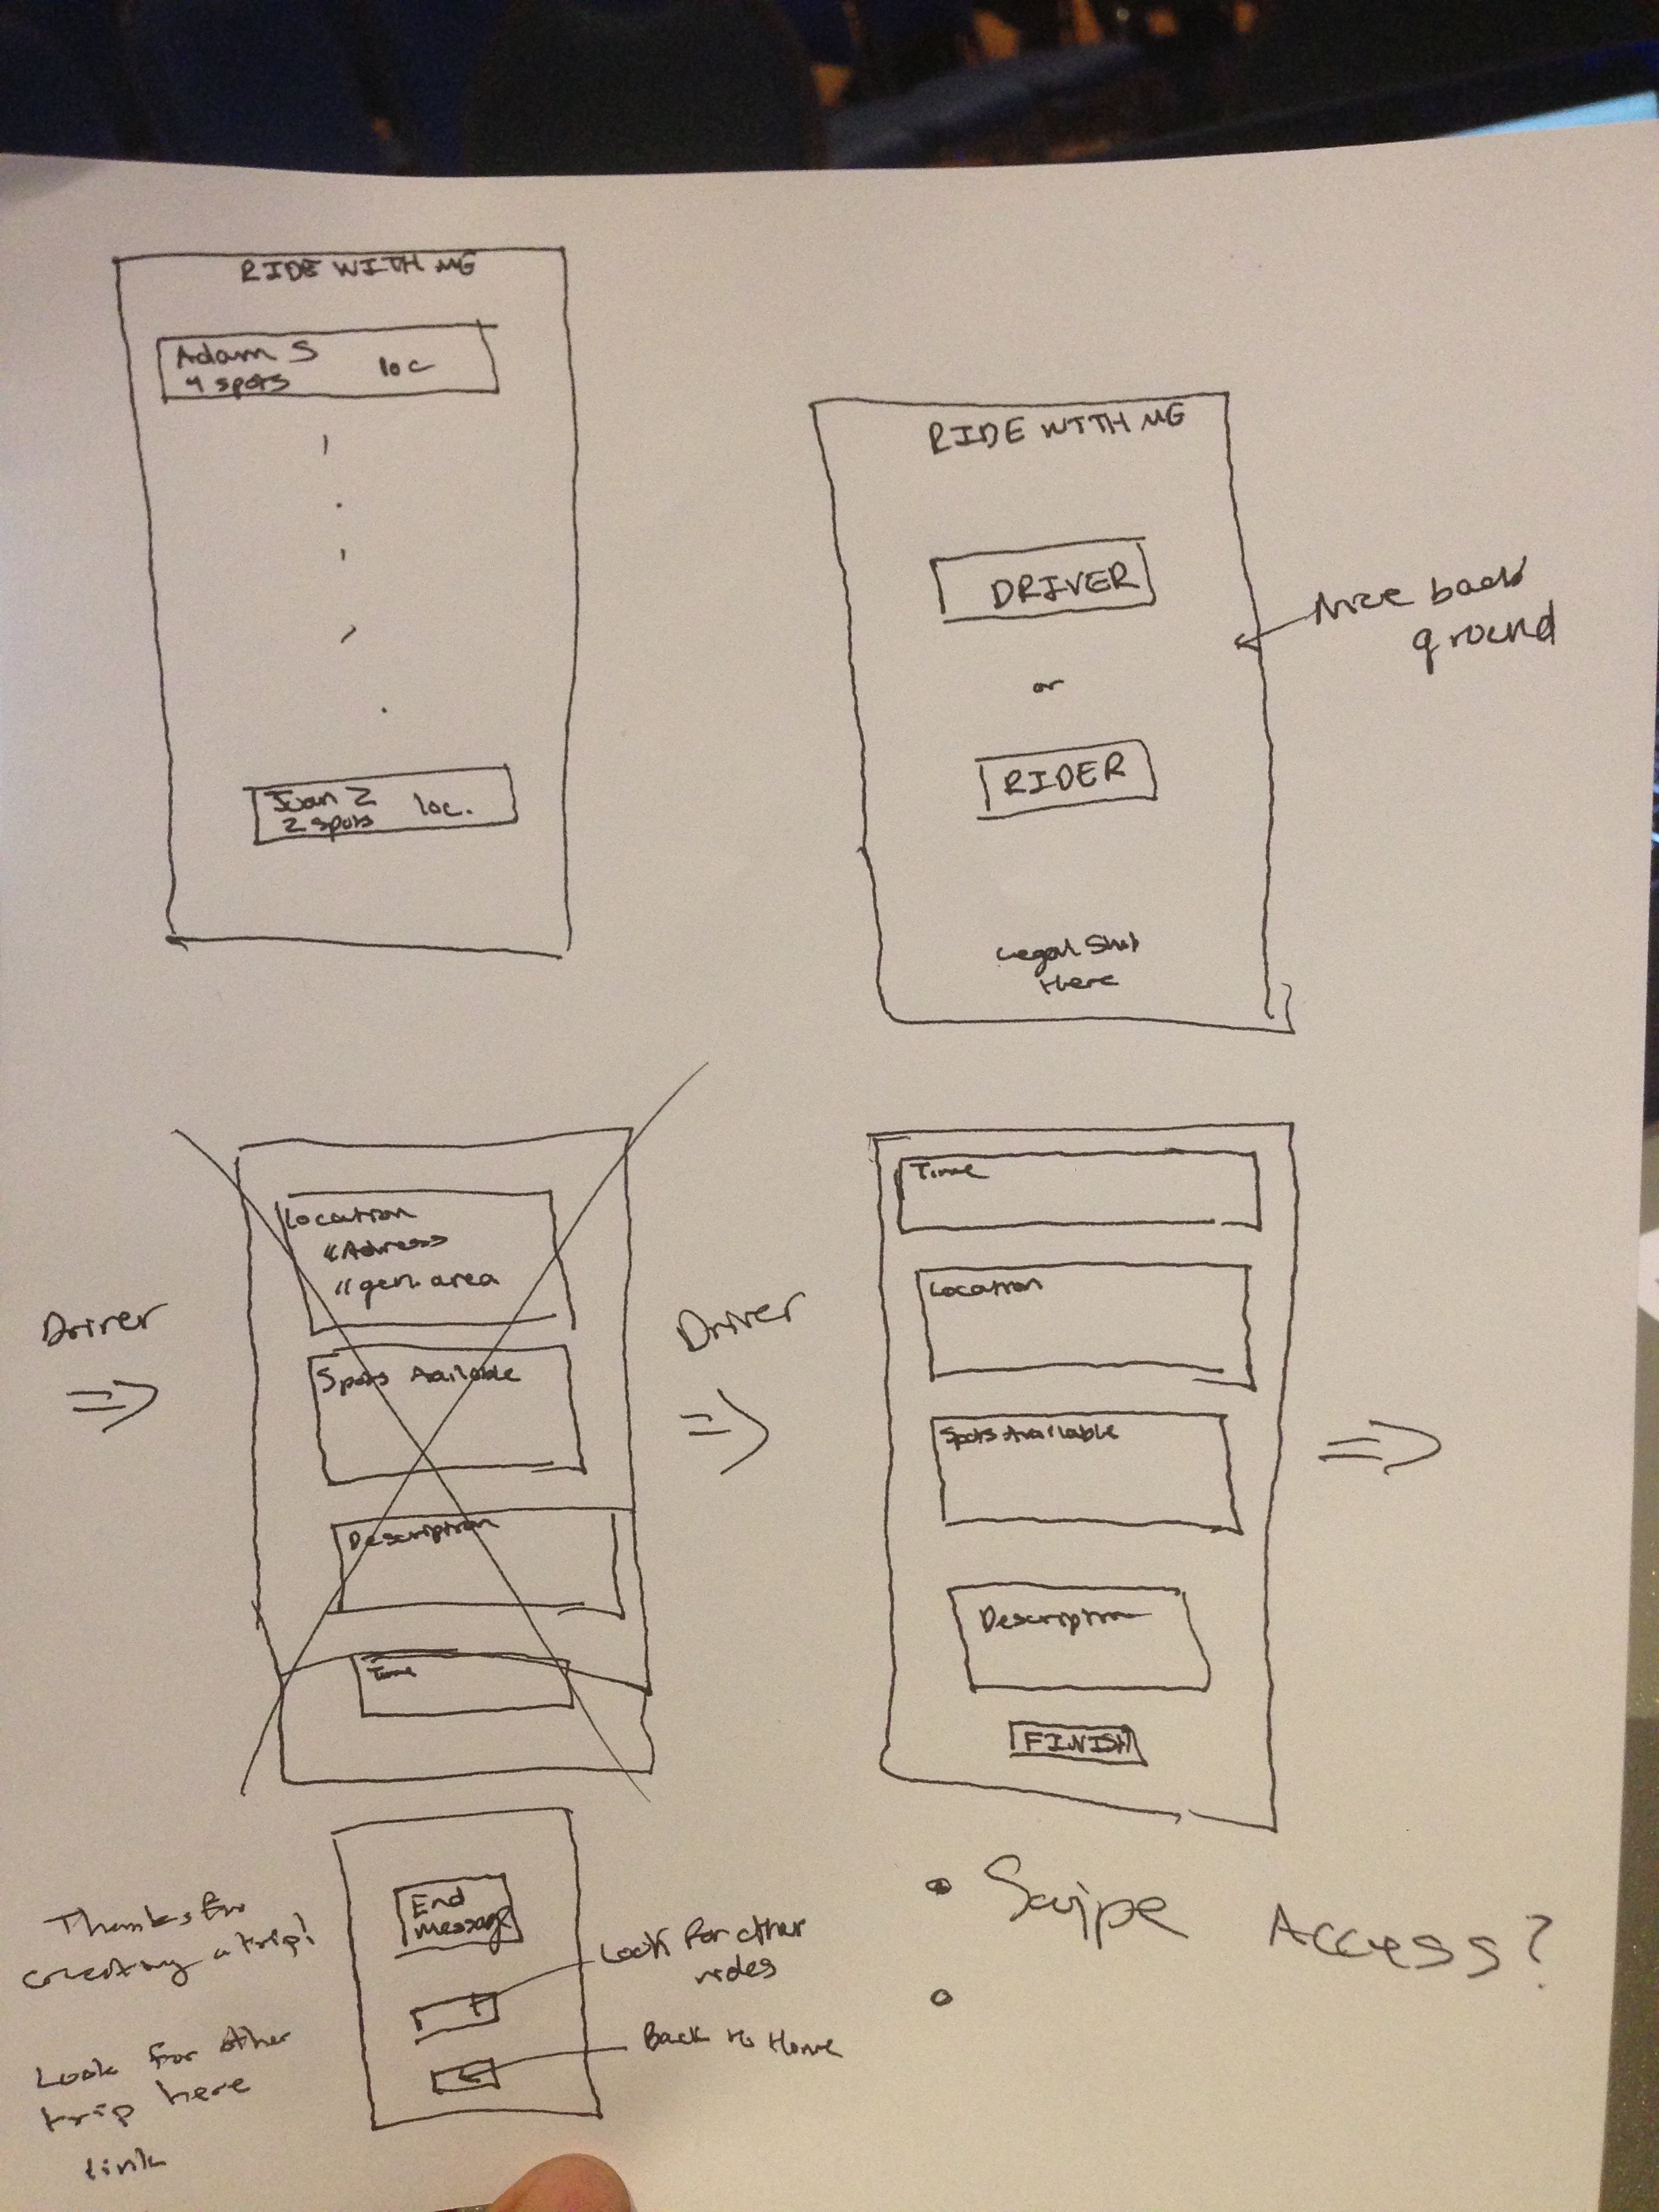 RIDE WITH ME
Adam S
4 spots
loc
Juan Z
2 spots
loc.
RIDE WITH ME
DRIVER
or
RIDER
Nice back
ground
Legal Shit
Here
Driver
=>
Location
"Address
"gen. area
Spots Available
Description
Time
Driver
=>
Time
Location
Spots Available
Description
FINISH
=>
Thanks for
creating a trip!
Look for other
trip here
link
End
message
Look for other
rides
Back to Home
• Swipe Access?